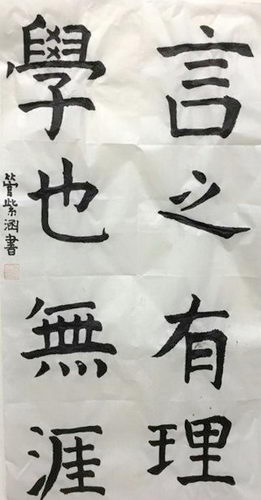 言之有理
學也無涯
管紫涵書